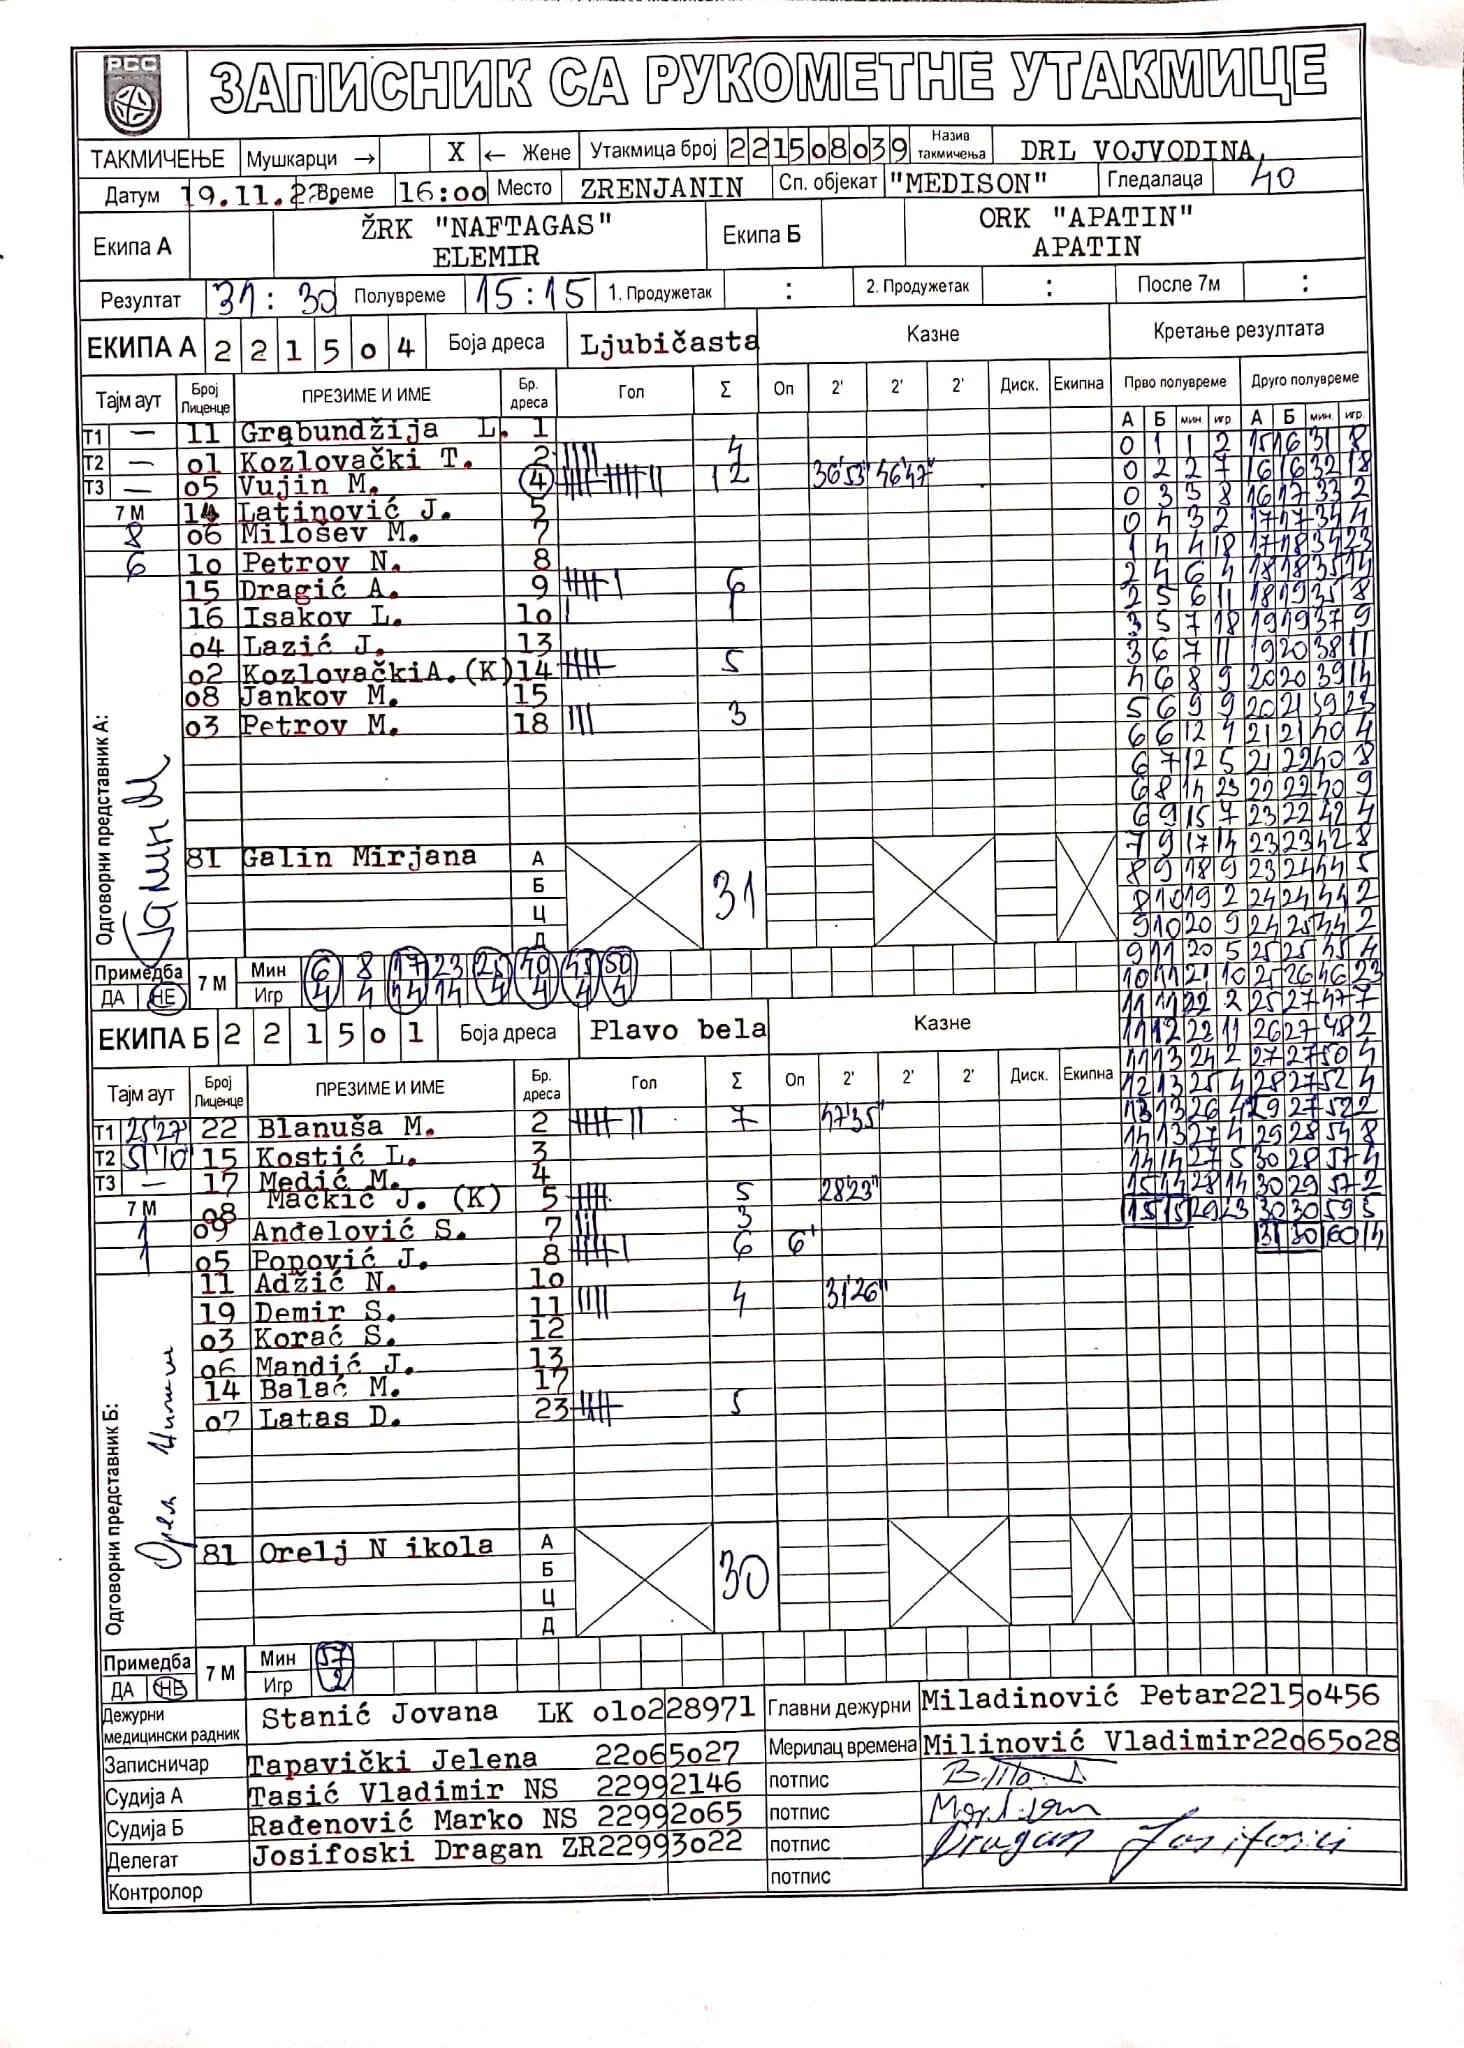 РСС
ЗАПИСНИК СА РУКОМЕТНЕ УТАКМИЦЕ
ТАКМИЧЕЊЕ Мушкарци → X ← Жене Утакмица број 2215o8o39 Назив такмичења DRL VOJVODINA
Датум 19.11.22. Време 16:oo Место ZRENJANIN Сп. објекат "MEDISON" Гледалаца 40
Екипа А ŽRK "NAFTAGAS" ELEMIR Екипа Б ORK "APATIN" APATIN
Резултат 31:30 Полувреме 15:15 1. Продужетак : 2. Продужетак : После 7м :
ЕКИПА А 2 2 1 5 o 4 Боја дреса Ljubičasta Казне Кретање резултата
Тајм аут Број Лиценце ПРЕЗИМЕ И ИМЕ Бр. дреса Гол Σ Оп 2' 2' 2' Диск. Екипна Прво полувреме Друго полувреме
А Б мин игр А Б мин. игр.
T1 — 11 Grabundžija L. 1
T2 — o1 Kozlovački T. 2 4
T3 — o5 Vujin M. 4 12 36'53" 46'47"
7 M 14 Latinović J. 5
8 o6 Milošev M. 7
6 1o Petrov N. 8
15 Dragić A. 9 6
16 Isakov L. 1o 1
o4 Lazić J. 13
o2 Kozlovački A.(K) 14 5
o8 Jankov M. 15
o3 Petrov M. 18 3
Одговорни представник А:
81 Galin Mirjana А Б Ц Д 31
Примедба ДА НЕ 7 М Мин 6 8 17 23 25 40 43 50
Игр 4 4 14 14 4 4 4 4
0 1 1 2 15 16 31 8
0 2 2 7 16 16 32 18
0 3 3 8 16 17 33 2
0 4 3 2 17 17 34 4
1 4 4 18 17 18 34 23
2 4 6 4 18 18 35 14
2 5 6 11 18 19 35 8
3 5 7 18 19 19 37 9
3 6 7 11 19 20 38 11
4 6 8 9 20 20 39 14
5 6 9 9 20 21 39 23
6 6 12 4 21 21 40 4
6 7 12 5 21 22 40 8
6 8 14 23 22 22 40 9
6 9 15 7 23 22 42 4
7 9 17 14 23 23 42 8
8 9 18 9 23 24 44 5
8 10 19 2 24 24 44 2
9 10 20 9 24 25 44 2
9 11 20 5 25 25 45 4
10 11 21 10 25 26 46 23
11 11 22 2 25 27 47 7
11 12 22 11 26 27 48 2
11 13 24 2 27 27 50 4
12 13 25 4 28 27 52 4
13 13 26 4 29 27 52 2
14 13 27 4 29 28 54 8
14 14 27 5 30 28 57 4
15 14 28 14 30 29 57 2
15 15 29 23 30 30 59 5
31 30 60 14
ЕКИПА Б 2 2 1 5 o 1 Боја дреса Plavo bela Казне
Тајм аут Број Лиценце ПРЕЗИМЕ И ИМЕ Бр. дреса Гол Σ Оп 2' 2' 2' Диск. Екипна
T1 25'27" 22 Blanuša M. 2 7 47'35"
T2 51'10" 15 Kostić L. 3
T3 — 17 Medić M. 4
7 M o8 Mačkić J. (K) 5 5 28'23"
1 o9 Anđelović S. 7 3
1 o5 Popović J. 8 6 6'
11 Adžić N. 1o
19 Demir S. 11 4 31'26"
o3 Korać S. 12
o6 Mandić J. 13
14 Balać M. 17
o7 Latas D. 23 5
Одговорни представник Б:
81 Orelj N ikola А Б Ц Д 30
Примедба ДА НЕ 7 М Мин 57
Игр 2
Дежурни медицински радник Stanić Jovana LK o1o228971 Главни дежурни Miladinović Petar2215o456
Записничар Tapavički Jelena 22o65o27 Мерилац времена Milinović Vladimir22o65o28
Судија А Tasić Vladimir NS 22992146 потпис
Судија Б Rađenović Marko NS 22992o65 потпис
Делегат Josifoski Dragan ZR22993o22 потпис Dragan Josifoski
Контролор потпис